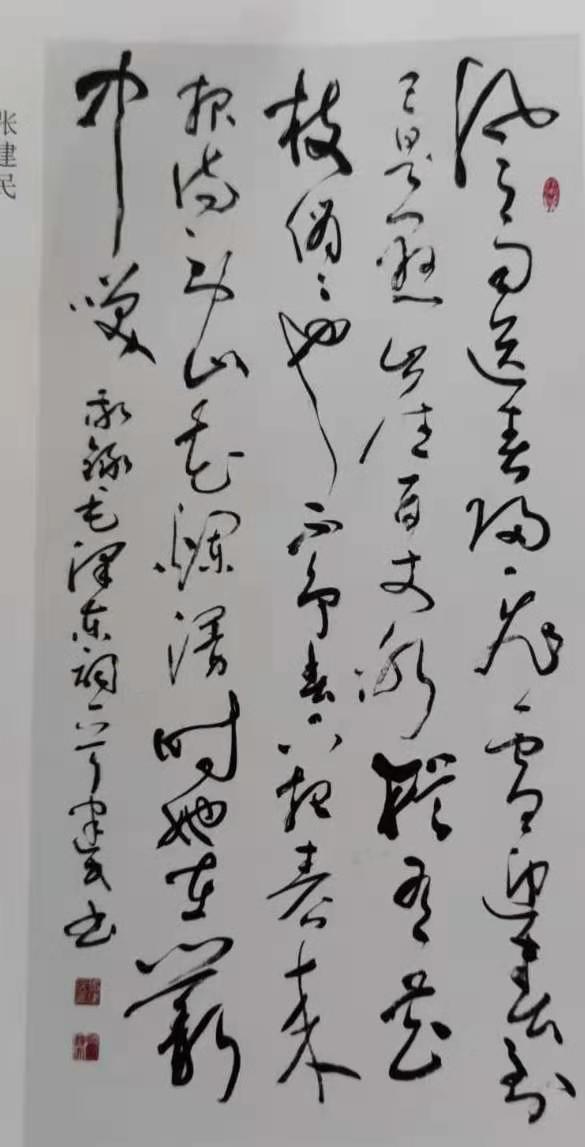 风雨送春归飞雪迎春到
已是悬崖百丈冰犹有花
枝俏〻也不争春只把春来
报待到山花烂漫时她在丛
中笑
录毛泽东词 建民书
张建民